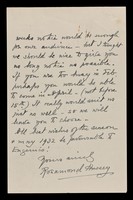 weeks notice would be enough
for our audience - but I thought
we should be wise to give you
as long notice as possible.
If you are too busy in Feb
perhaps you would be able
to come in April - (not before
15th). It really would suit us
just as well - so we will
leave you to choose -
All best wishes of the season
& may 1932 be favourable to
Yours sincerely
Rosamond